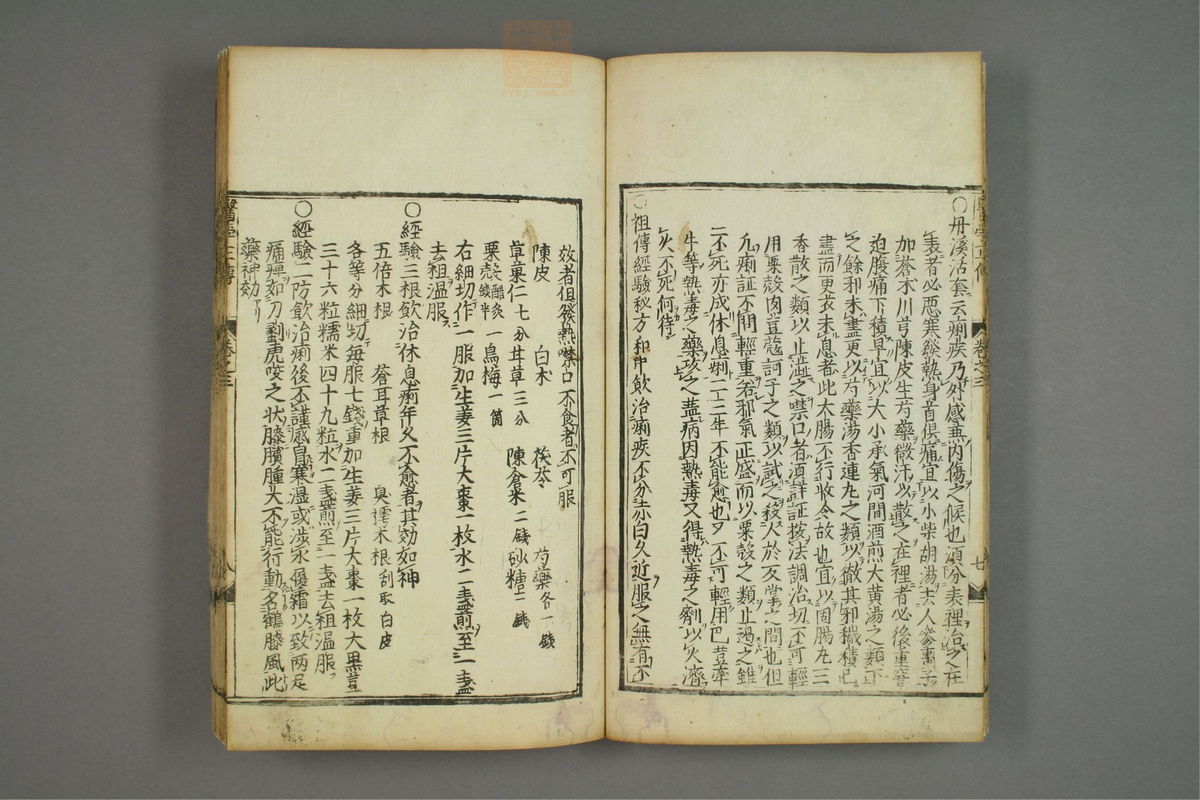 ○丹溪活套云痢疾乃外感兼内傷之候也須分表裡治之在
表者必惡寒發熱身首俱痛宜以小柴胡湯去人參棗子
加蒼术川芎陳皮生芍藥微汗以散之在裡者必後重窘
迫腹痛下積早宜以大小承氣河間酒煎大黄湯之類下
之餘邪未盡更以芍藥湯香連丸之類以徹其邪穢積已
盡而更衣未息者此大腸不行收令故也宜以固腸丸三
香散之類以止澁之噤口者須詳証按法調治切不可輕
用粟殻肉豆蔻訶子之類以試之殺人於反掌之間也但
凡痢証不問輕重若邪氣正盛而以粟殻之類止遏之雖
不死亦成休息痢二三年不能愈也又不可輕用巴荳牽
牛等熱毒之藥攻之蓋病因熱毒又得熱毒之劑以火濟
火不死何待
○祖傳經驗秘方和中飲治痢疾不分赤白久近服之無有不
醫學正傳
卷之三
七
效者但發熱噤口不食者不可服
陳皮 白术 茯苓 芍藥各一錢
草菓仁七分 甘草三分 陳倉米二錢 砂糖二錢
粟殻醋炙一錢半 烏梅一箇
右細切作一服加生姜三片大棗一枚水二盞煎至一盞
去粗温服
○經驗三根飲治休息痢年久不愈者其効如神
五倍木根 蒼耳草根 臭樗木根刮取白皮
各等分細切每服七錢重加生姜三片大棗一枚大黒荳
三十六粒糯米四十九粒水二盞煎至一盞去粗温服
○經驗二防飲治痢後不謹感冒寒温或涉水履霜以致两足
痛痺如刀劙虎咬之状膝臏腫大不能行動名鶴膝風此
藥神効
醫學正傳
卷之三
八